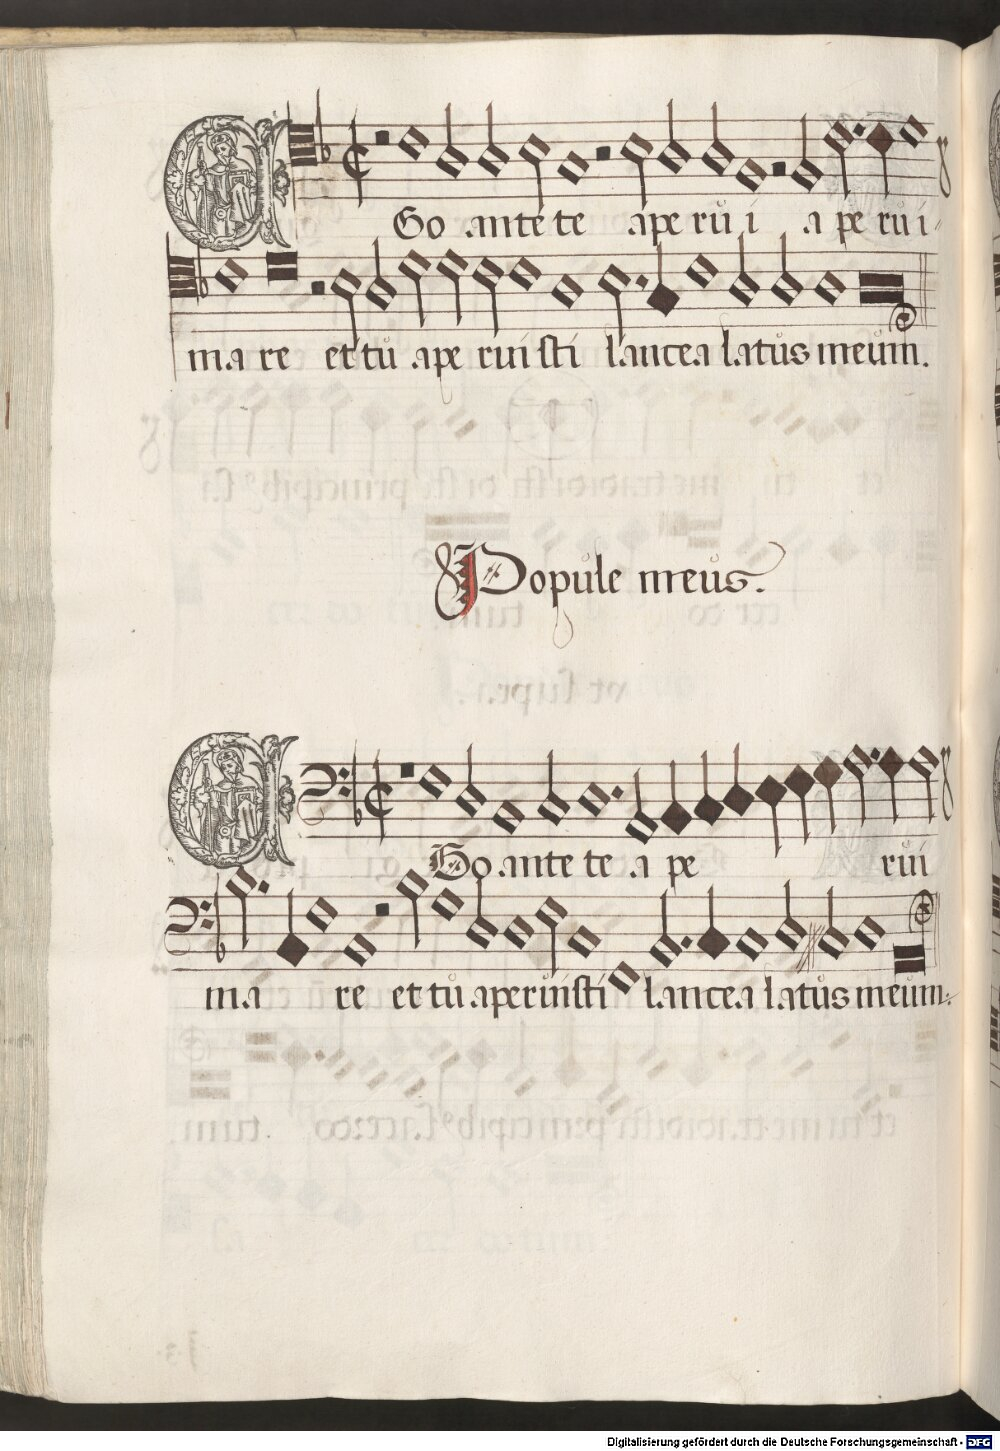 EGo ante te aperui aperui
mare et tu aperuisti lancea latus meum.
Popule meus.
EGo ante te ape rui
mare et tu aperuisti lancea latus meum.
Digitalisierung gefördert durch die Deutsche Forschungsgemeinschaft - DFG